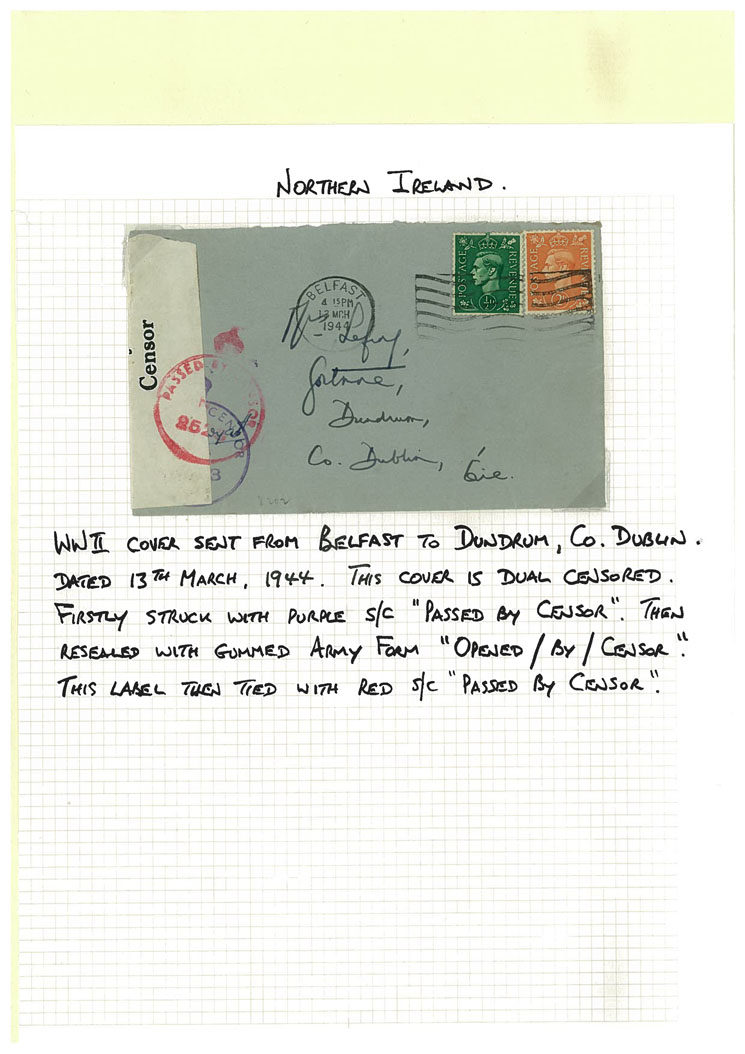 NORTHERN IRELAND.
POSTAGE REVENUE
POSTAGE REVENUE
BELFAST
4 15PM
13 MCH
1944
Censor
PASSED BY
CENSOR
Mrs Lefroy,
Dundrum,
Co. Dublin, Éire.
WWII COVER SENT FROM BELFAST TO DUNDRUM, CO. DUBLIN.
DATED 13TH MARCH, 1944. THIS COVER IS DUAL CENSORED.
FIRSTLY STRUCK WITH PURPLE S/C "PASSED BY CENSOR". THEN
RESEALED WITH GUMMED ARMY FORM "OPENED / BY / CENSOR".
THIS LABEL THEN TIED WITH RED S/C "PASSED BY CENSOR".